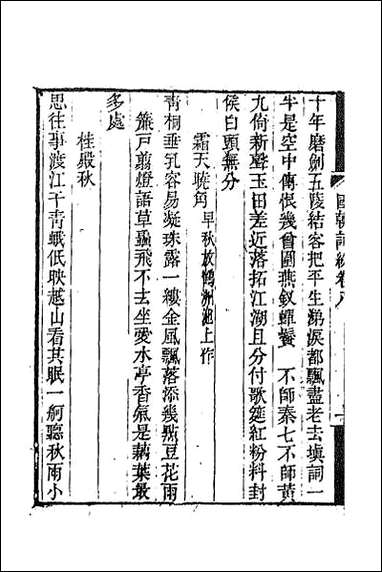 國朝詞綜卷八
十年磨劍五陵結客把平生涕淚都飄盡老去塡詞一
半是空中傳恨幾曾圍燕釵蟬鬢　不師秦七不師黃
九倚新聲玉田差近落拓江湖且分付歌筵紅粉料封
侯白頭無分
霜天曉角　早秋放鶴洲池上作
靑桐垂乳容易凝珠露一縷金風飄落添幾點豆花雨
簾戶翦燈語草蟲飛不去坐愛水亭香氣是藕葉最
多處
桂殿秋
思往事渡江干靑蛾低映越山看共眠一舸聽秋雨小